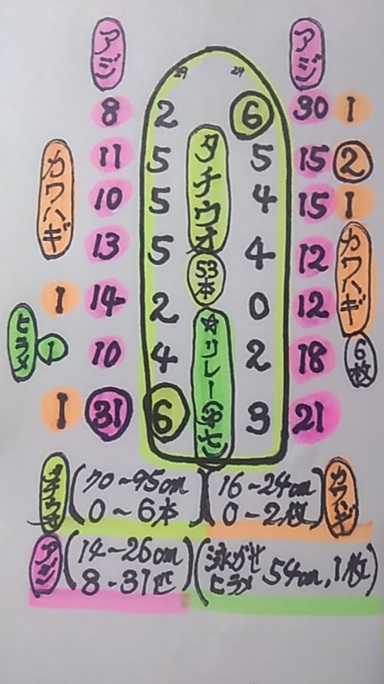 アジ アジ
8 2 6 30 1
11 5 5 15 2
10 5 4 15 1
13 5 4 12
1 14 2 0 12
1 10 4 2 18
1 31 6 3 21
カワハギ
ヒラメ
タチウオ
53本
☆リレー(第七)
カワハギ
6枚
タチウオ (70~95cm 0~6本)
(16~24cm 0~2枚) カワハギ
アジ (14~26cm 8~31匹)
(泳がせヒラメ 54cm,1枚)